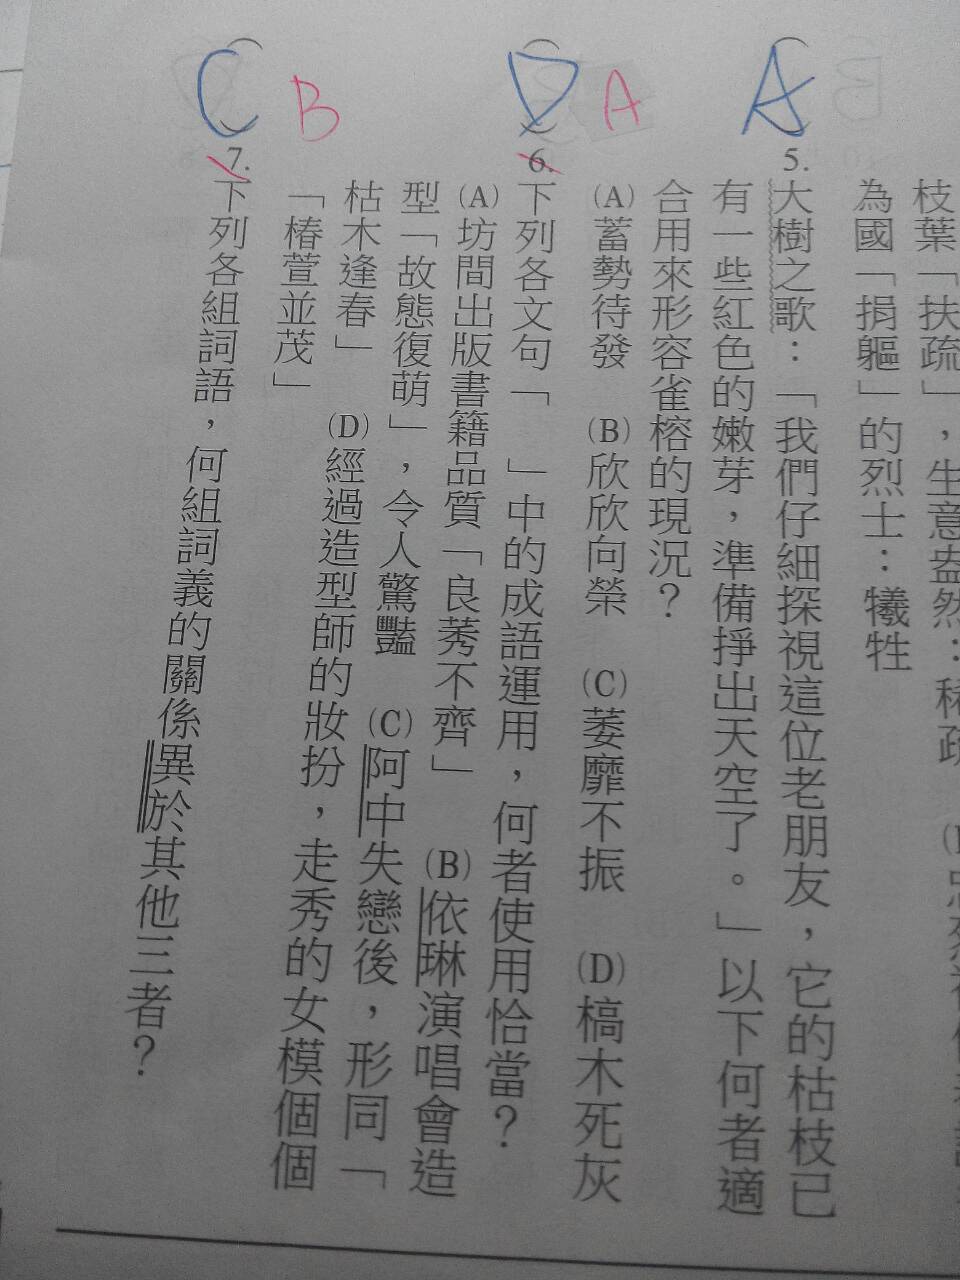 枝葉「扶疏」，生意盎然：稀疏
為國「捐軀」的烈士：犧牲
A
5.大樹之歌：「我們仔細探視這位老朋友，它的枯枝已
有一些紅色的嫩芽，準備掙出天空了。」以下何者適
合用來形容雀榕的現況？
(A)蓄勢待發　(B)欣欣向榮　(C)萎靡不振　(D)槁木死灰
D A
6.下列各文句「　」中的成語運用，何者使用恰當？
(A)坊間出版書籍品質「良莠不齊」　(B)依琳演唱會造
型「故態復萌」，令人驚豔　(C)阿中失戀後，形同「
枯木逢春」　(D)經過造型師的妝扮，走秀的女模個個
「椿萱並茂」
C B
7.下列各組詞語，何組詞義的關係異於其他三者？